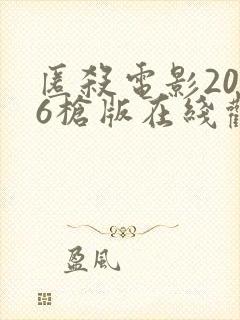 匿殺電影20
6槍版在綫觀
盈風